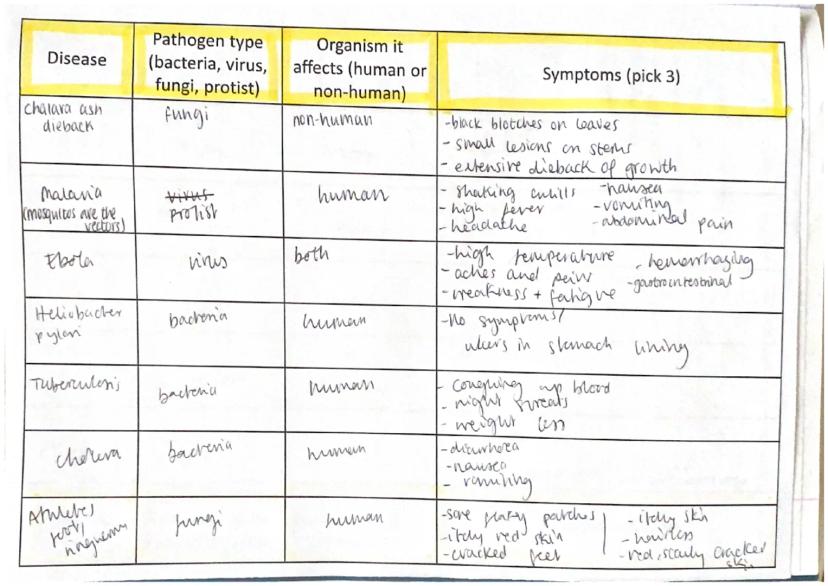 Disease
Pathogen type
(bacteria, virus,
fungi, protist)
Organism it
affects (human or
non-human)
Symptoms (pick 3)
Chalara ash
dieback
fungi
non-human
-black blotches on leaves
- small lesions on stems
- extensive dieback of growth
Malaria
(mosquitos are the
vectors)
virus
protist
human
- shaking chills
- high fever
- headache
- nausea
- vomiting
- abdominal pain
Ebola
virus
both
-high temperature
- aches and pains
- weakness + fatigue
- hemorrhaging
- gastrointestinal
Heliobacter
pylori
bacteria
human
-No symptoms/
ulcers in stomach lining
Tuberculosis
bacteria
human
- coughing up blood
- night sweats
- weight loss
cholera
bacteria
human
-diarrhoea
-nausea
- vomiting
Athletes
foot/
ringworm
fungi
human
-sore flaky patches
-itchy red skin
-cracked feet
- itchy skin
- hairloss
- red, scaly cracked
skin